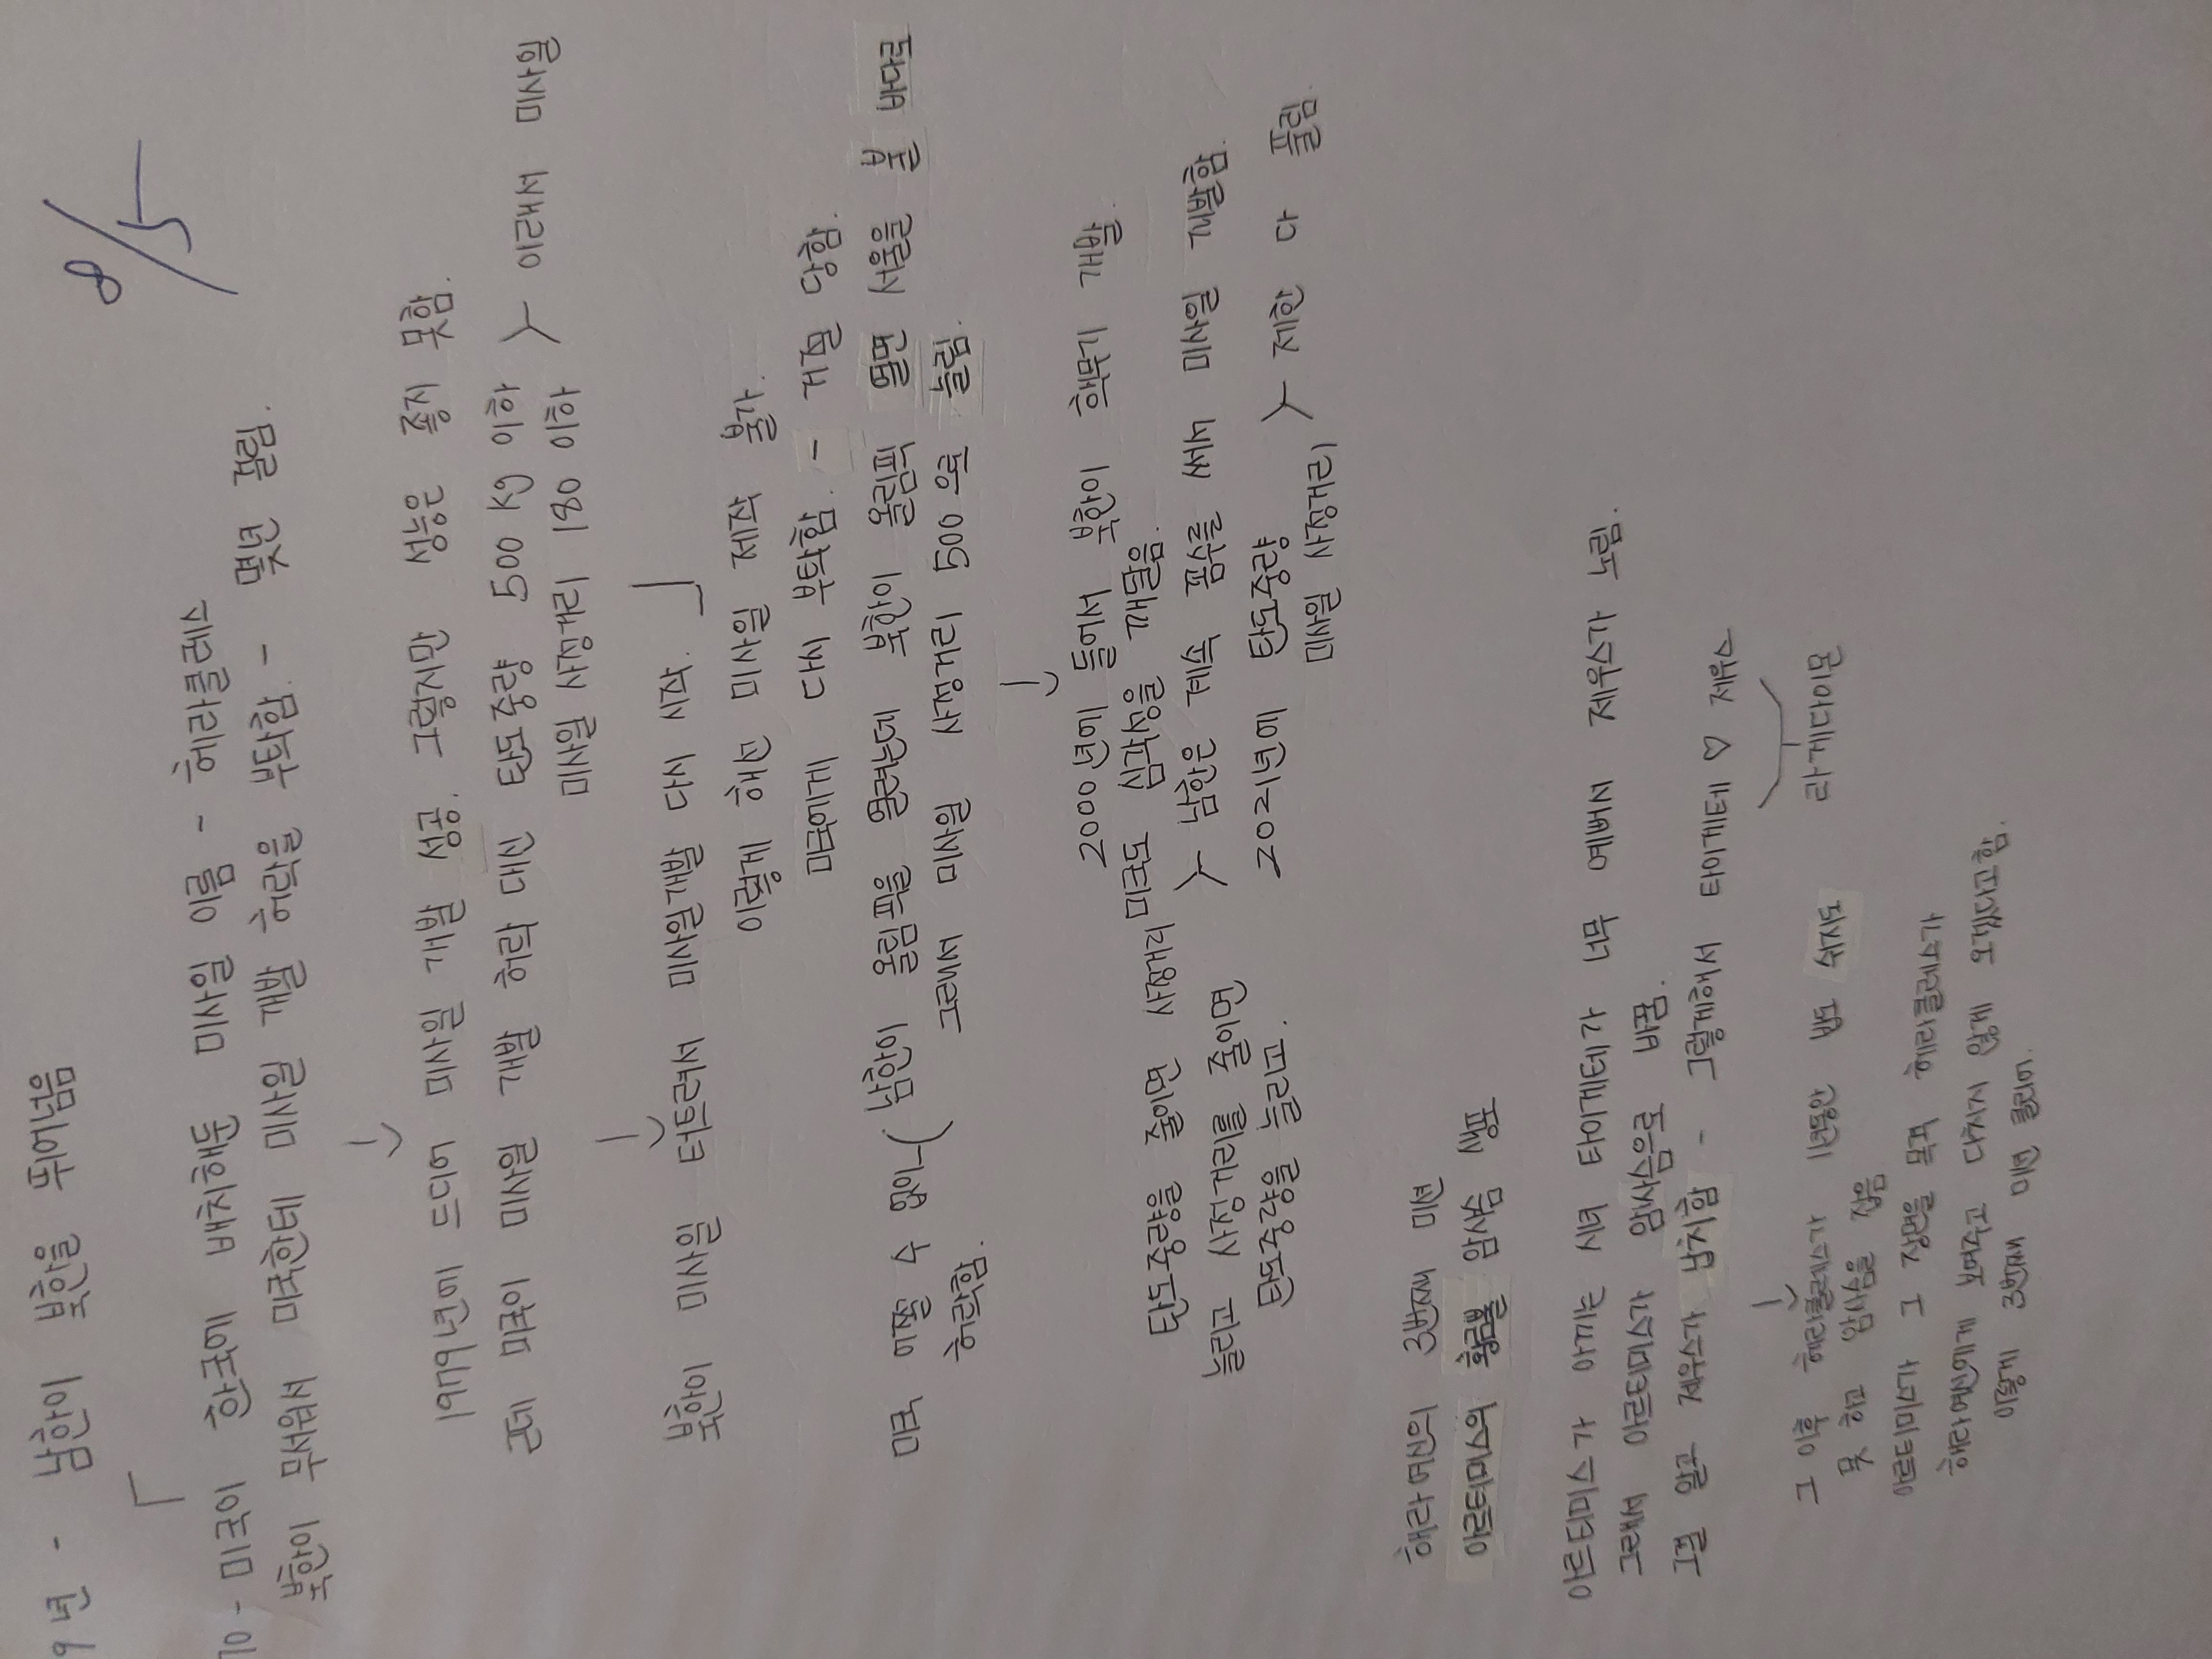 8/5
9년 - 남한이 북한을 뛰어넘음
70 - 미국이 한국에 배치해둔 미사일 이름 - 헤라클레스
북한이 무서워서 미국한테 미사일 개발 허락을 부탁함. - 몇년 풀림.
1979년에 드디어 미사일 개발 성공. 그렇지만 성능은 좋지 못함.
근데 미국이 미사일 개발 허락 대신 탄도중량 500 kg 이하
미사일 사정거리 180 이하
이래서 미사일
북한이 미사일 터트려서 미사일개발 다시 시작.
이렇게 해선 미사일 제작 불가.
미국에게 다시 부탁함. - 거절 당함.
미국 어쩔 수 없이 남한이 올림픽을 열려는데 북한이 올림픽 열면 서울을 불 바다로
허락함. 그래서 미사일 사정거리 500 으로 늘림.
2000년에 들어서 북한이 핵무기 개발.
탄도중량을 줄이면 사정거리 미국도 심각성을 깨달음.
늘리고 사정거리를 줄이면 남한은 계속 꼼수를 써서 미사일 개발함.
탄도중량을 늘리고. 2021년에 탄도중량
미사일 사정거리
제한 다 풀림
헤라여신의 3번째 미션
아르테미스의 황금뿔 암사슴 생포
아르테미스가 아끼는 시녀 타이게테가 너무 예뻐서 제우스가 노림.
그래서 아르테미스가 암사슴으로 바꿈.
결국 제우스가 납치함 - 그렇게해서 타이게테 ♡ 제우스
라케다이몬
그 이후 헤라클레스가 1년동안 밥 쉬지도
못 하고 암사슴을 잡음
아르테미스가 그 장면을 목격 헤라클레스가
헤라여신에게 보여주고 다치지 않게 오게하겠다고함.
이렇게 3번째 미션 클리어.